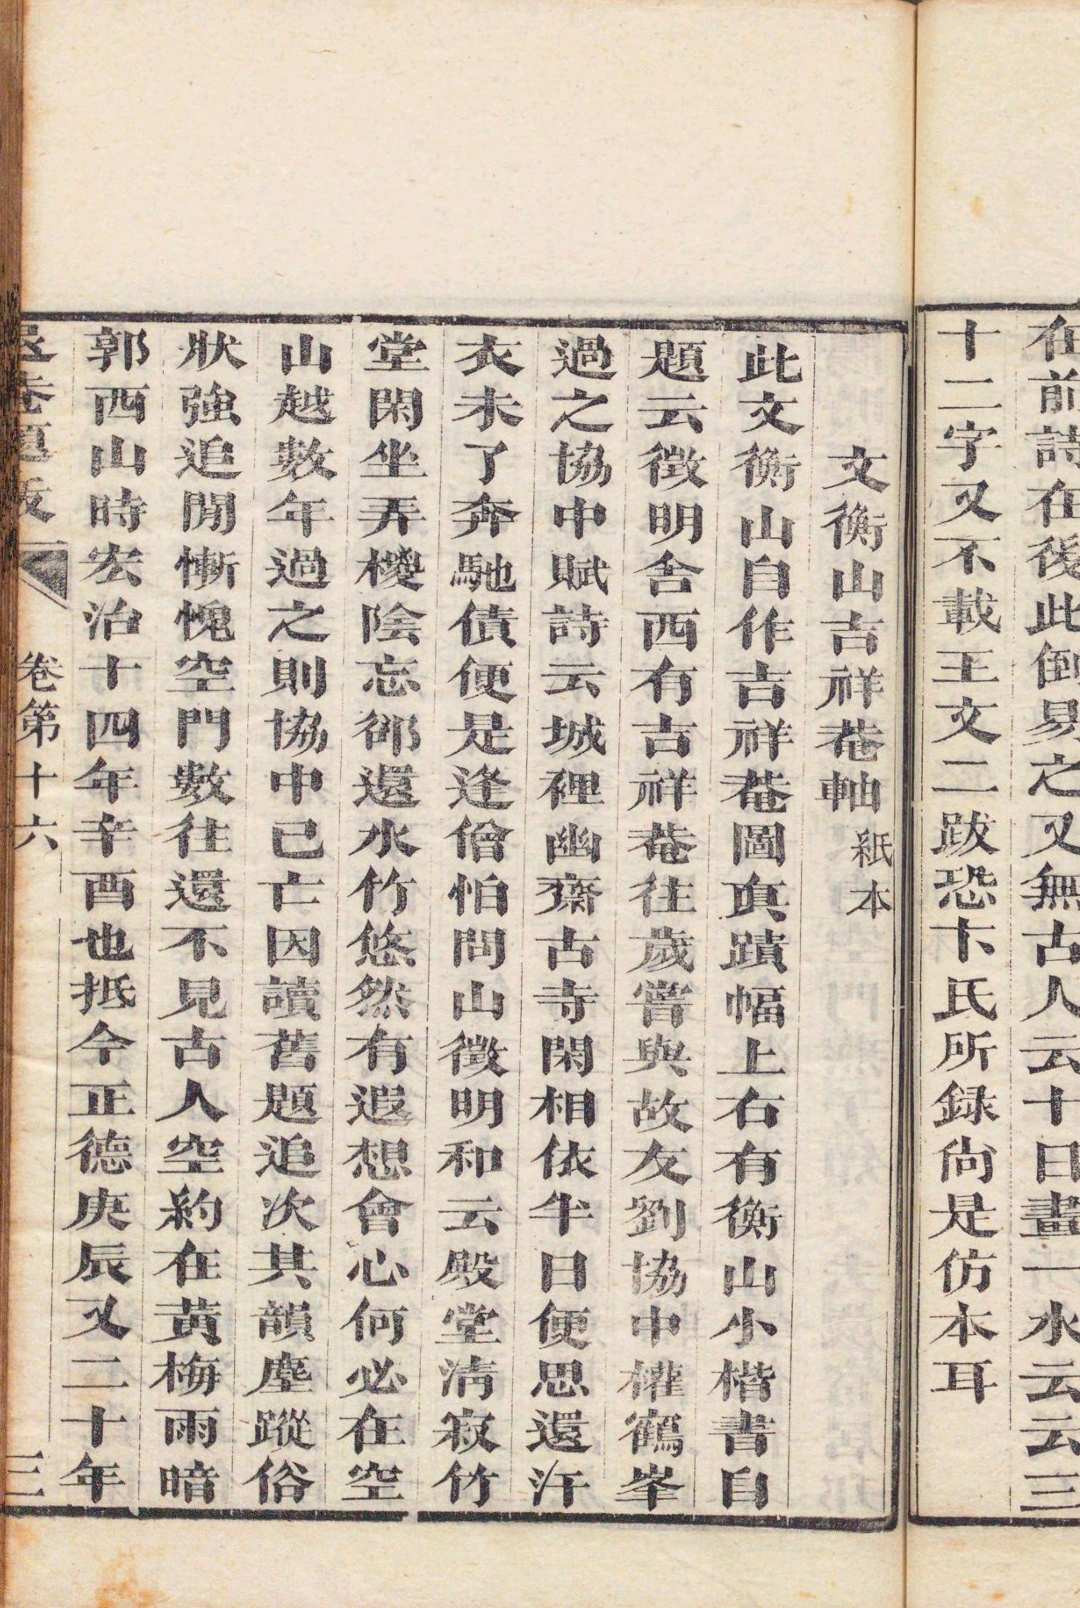 在前詩在後此倒易之又無古人云十日畫一水云云三
十二字又不載王文二跋恐卞氏所録尙是仿本耳
文衡山吉祥菴軸 紙本
此文衡山自作吉祥菴圖真蹟幅上右有衡山小楷書自
題云徵明舍西有吉祥菴往歲嘗與故友劉協中權鶴峯
過之協中賦詩云城裡幽齋古寺閑相依半日便思還汗
衣未了奔馳債便是逢僧怕問山徵明和云殿堂淸寂竹
堂閑坐弄椶陰忘郤還水竹悠然有遐想會心何必在空
山越數年過之則協中已亡因讀舊題追次其韻塵蹤俗
狀強追閒慚愧空門數往還不見古人空約在黃梅雨暗
郭西山時宏治十四年辛酉也抵今正德庚辰又二十年
卷第十六
三